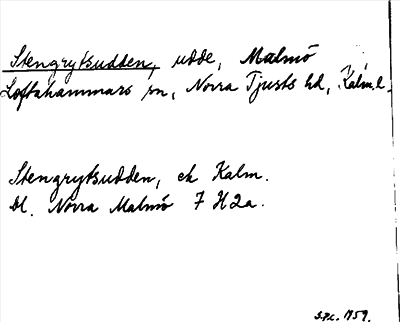 Stengrytsudden, udde, Malmö
Loftahammars sn, Norra Tjusts hd, Kalm.l.
Stengrytsudden, ek Kalm.
bl. Norra Malmö 7 H2a.
1959.